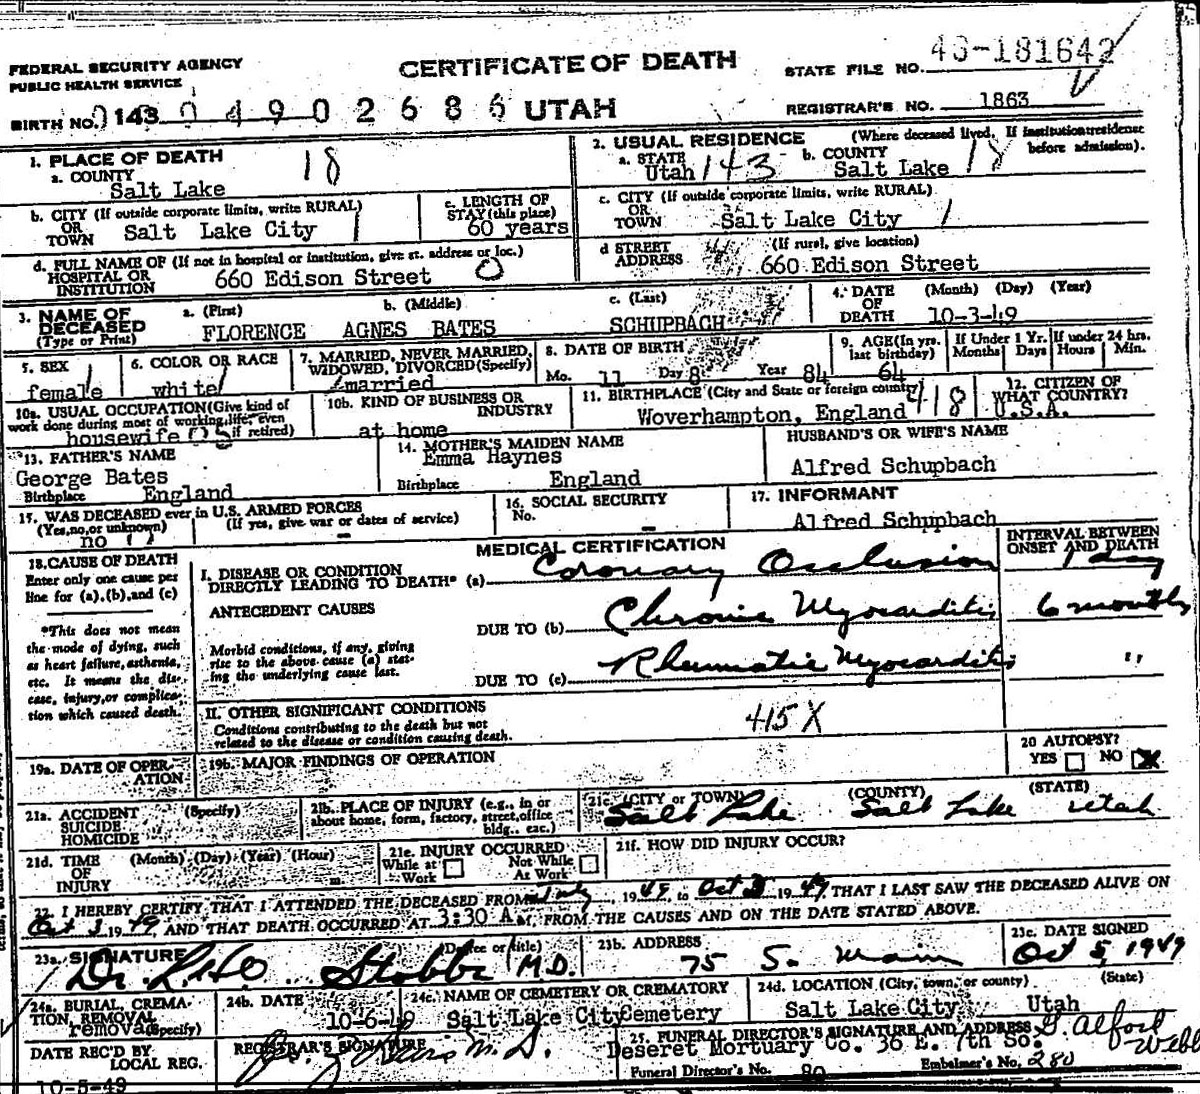 43-181642
FEDERAL SECURITY AGENCY CERTIFICATE OF DEATH STATE FILE NO.
PUBLIC HEALTH SERVICE
BIRTH NO. 143 0 4 9 0 2 6 8 6 UTAH REGISTRAR'S NO. 1863
1. PLACE OF DEATH 18
a. COUNTY
Salt Lake
2. USUAL RESIDENCE (Where deceased lived. If institution: residence before admission).
a. STATE b. COUNTY
Utah 143 Salt Lake 18
b. CITY (If outside corporate limits, write RURAL)
OR
TOWN Salt Lake City 1
c. LENGTH OF
STAY (this place)
60 years
c. CITY (If outside corporate limits, write RURAL)
OR
TOWN Salt Lake City 1
d. FULL NAME OF (If not in hospital or institution, give st. address or loc.)
HOSPITAL OR
INSTITUTION 660 Edison Street 0
d STREET (If rural, give location)
ADDRESS 660 Edison Street
3. NAME OF
DECEASED
(Type or Print)
a. (First) b. (Middle) c. (Last)
FLORENCE AGNES BATES SCHUPBACH
4. DATE (Month) (Day) (Year)
OF
DEATH 10-3-49
5. SEX
female
6. COLOR OR RACE
white
7. MARRIED, NEVER MARRIED,
WIDOWED, DIVORCED (Specify)
married
8. DATE OF BIRTH
Mo. 11 Day 8 Year 84
9. AGE (In yrs.
last birthday)
64
If Under 1 Yr. If under 24 hrs.
Months Days Hours Min.
10a. USUAL OCCUPATION (Give kind of
work done during most of working life, even
if retired)
housewife
10b. KIND OF BUSINESS OR
INDUSTRY
at home
11. BIRTHPLACE (City and State or foreign country)
Woverhampton, England 418
12. CITIZEN OF
WHAT COUNTRY?
U.S.A.
13. FATHER'S NAME
George Bates
Birthplace England
14. MOTHER'S MAIDEN NAME
Emma Haynes
Birthplace England
HUSBAND'S OR WIFE'S NAME
Alfred Schupbach
15. WAS DECEASED ever in U.S. ARMED FORCES
(Yes, no, or unknown) (If yes, give war or dates of service)
no -
16. SOCIAL SECURITY
No. -
17. INFORMANT
Alfred Schupbach
18. CAUSE OF DEATH
Enter only one cause per
line for (a), (b), and (c)
*This does not mean
the mode of dying, such
as heart failure, asthenia,
etc. It means the dis-
ease, injury, or complica-
tion which caused death.
MEDICAL CERTIFICATION
INTERVAL BETWEEN
ONSET AND DEATH
I. DISEASE OR CONDITION
DIRECTLY LEADING TO DEATH* (a) Coronary Occlusion 1 day
ANTECEDENT CAUSES
DUE TO (b) Chronic Myocarditis 6 months
Morbid conditions, if any, giving
rise to the above cause (a) stat-
ing the underlying cause last.
DUE TO (c) Rheumatic Myocarditis "
II. OTHER SIGNIFICANT CONDITIONS
Conditions contributing to the death but not
related to the disease or condition causing death.
415X
19a. DATE OF OPER-
ATION
19b. MAJOR FINDINGS OF OPERATION
20 AUTOPSY?
YES NO X
21a. ACCIDENT (Specify)
SUICIDE
HOMICIDE
21b. PLACE OF INJURY (e.g., in or
about home, form, factory, street, office
bldg., exc.)
21c. (CITY or TOWN) (COUNTY) (STATE)
Salt Lake Salt Lake Utah
21d. TIME (Month) (Day) (Year) (Hour)
OF
INJURY
21e. INJURY OCCURRED
While at Work Not While At Work
21f. HOW DID INJURY OCCUR?
22. I HEREBY CERTIFY THAT I ATTENDED THE DECEASED FROM July, 1949, to Oct 3 1949 THAT I LAST SAW THE DECEASED ALIVE ON
Oct 3 1949 AND THAT DEATH OCCURRED AT 3:30 A M, FROM THE CAUSES AND ON THE DATE STATED ABOVE.
23a. SIGNATURE (Degree or title)
Dr. Stobbe M.D.
23b. ADDRESS
75 S. Main
23c. DATE SIGNED
Oct 5, 1949
24a. BURIAL, CREMA-
TION, REMOVAL
(Specify)
removal
24b. DATE
10-6-49
24c. NAME OF CEMETERY OR CREMATORY
Salt Lake City Cemetery
24d. LOCATION (City, town, or county) (State)
Salt Lake City Utah
DATE REC'D BY
LOCAL REG.
10-5-49
REGISTRAR'S SIGNATURE
M.D.
25. FUNERAL DIRECTOR'S SIGNATURE AND ADDRESS
Deseret Mortuary Co. 36 E. 7th So.
Funeral Director's No. 80 Embalmer's No. 280